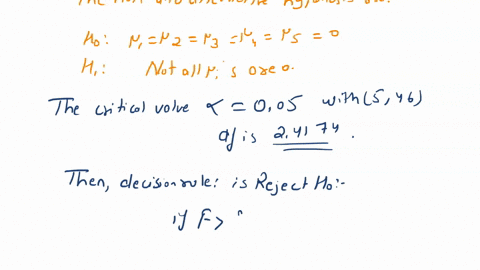 The null and alternative hypothesis are:
H₀: μ₁ = μ₂ = μ₃ = μ₄ = μ₅ = 0
H₁: Not all μᵢ's are 0.
The critical value α = 0.05 with (5, 46)
df is 2.4174.
Then, decision rule: is Reject H₀:-
if F >